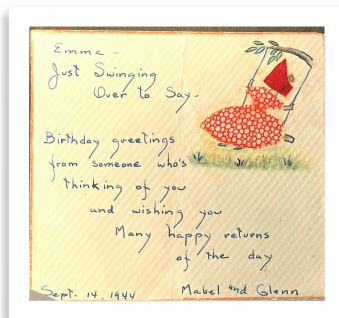 Emma -
Just Swinging
Over to Say-
Birthday greetings
from someone who's
thinking of you
and wishing you
Many happy returns
of the day
Sept. 14, 1944 Mabel and Glenn